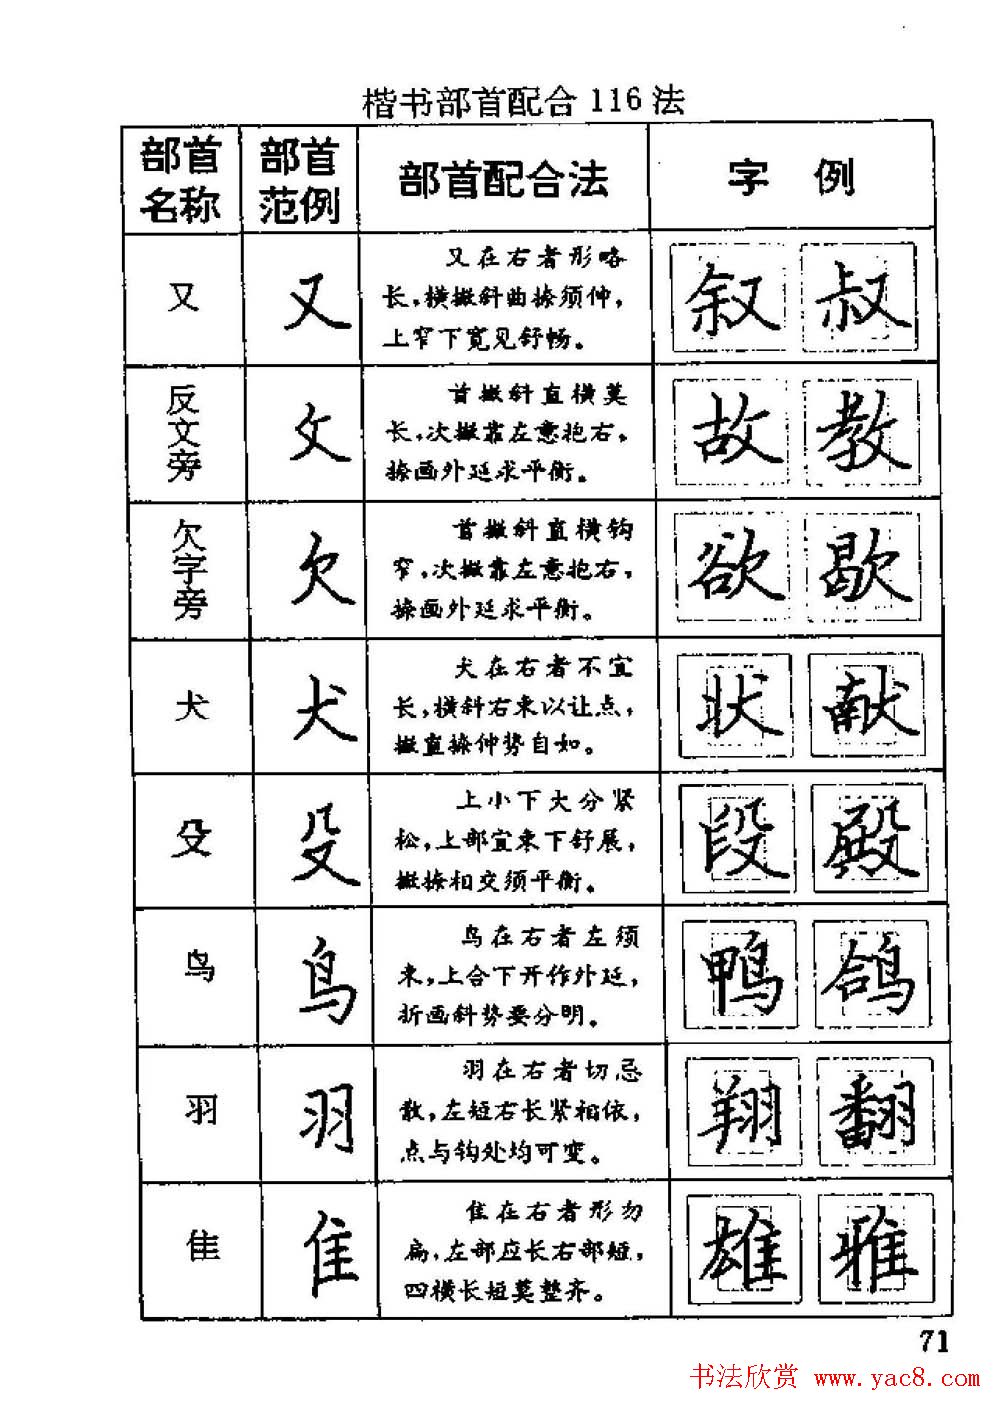 楷书部首配合116法
部首名称 部首范例 部首配合法 字 例
又 又 又在右者形略
长，横撇斜曲捺须伸，
上窄下宽见舒畅。
叙 叔
反文旁 攵 首撇斜直横莫
长，次撇靠左意抱右，
捺画外延求平衡。
故 教
欠字旁 欠 首撇斜直横钩
窄，次撇靠左意抱右，
捺画外延求平衡。
欲 歇
犬 犬 犬在右者不宜
长，横斜右束以让点，
撇直捺伸势自如。
状 献
殳 殳 上小下大分紧
松，上部宜束下舒展，
撇捺相交须平衡。
段 殿
鸟 鸟 鸟在右者左须
束，上合下开作外延，
折画斜势要分明。
鸭 鸽
羽 羽 羽在右者切忌
散，左短右长紧相依，
点与钩处均可变。
翔 翻
隹 隹 隹在右者形勿
扁，左部应长右部短，
四横长短莫整齐。
雄 雅
71
书法欣赏 www.yac8.com